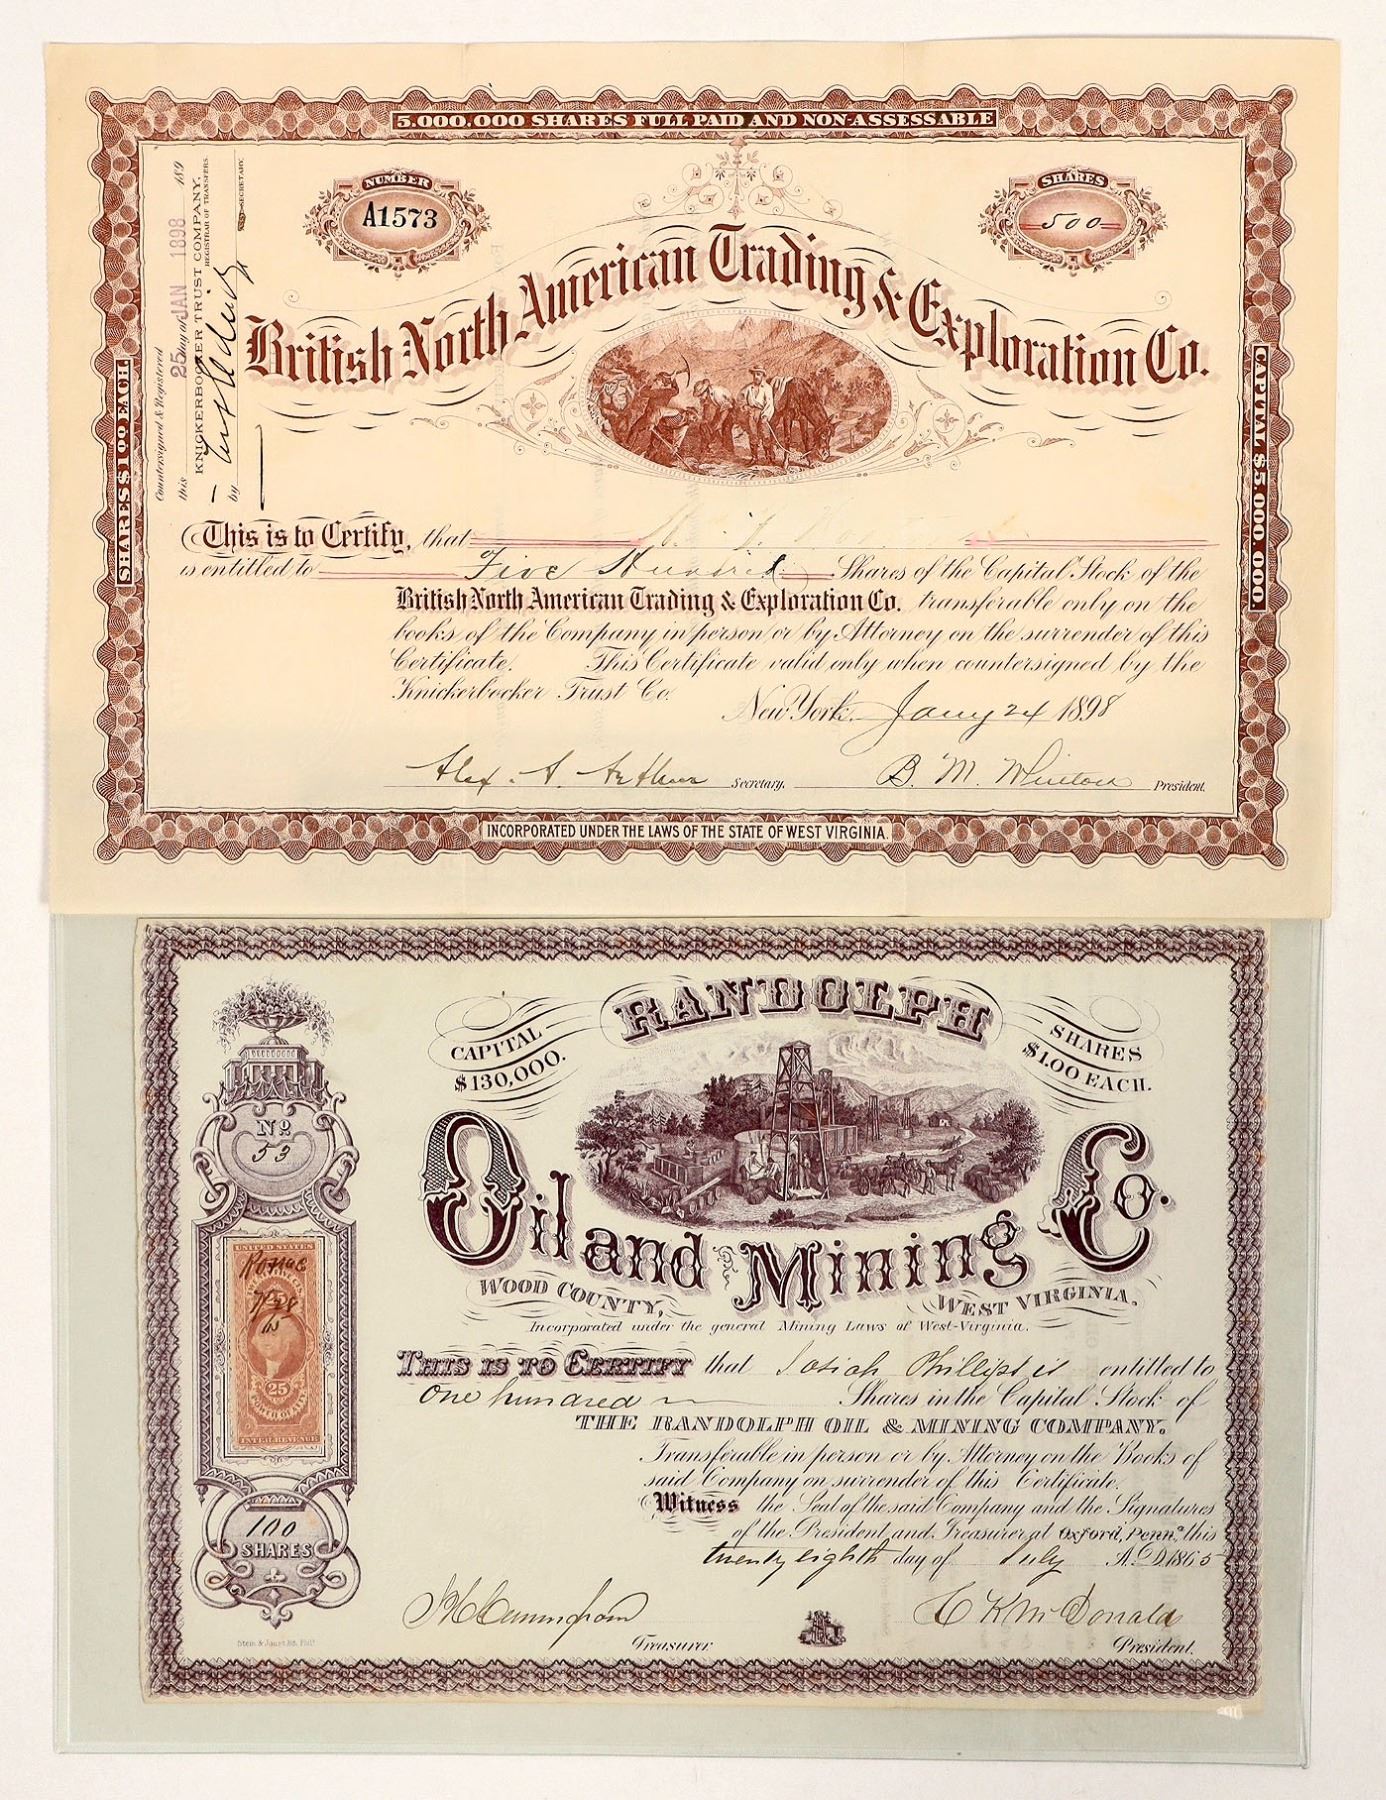 5,000,000 SHARES FULL PAID AND NON-ASSESSABLE
NUMBER
A1573
SHARES
500
SHARES $1.00 EACH.
CAPITAL $5,000,000.
Countersigned & Registered
this 25 day of JAN 1898 189
KNICKERBOCKER TRUST COMPANY,
REGISTRAR OF TRANSFERS.
by
SECRETARY.
British North American Trading & Exploration Co.
This is to Certify, that
is entitled to Five Hundred Shares of the Capital Stock of the
British North American Trading & Exploration Co. transferable only on the
books of the Company in person or by Attorney on the surrender of this
Certificate. This Certificate valid only when countersigned by the
Knickerbocker Trust Co.
New York, Jany 24 1898
Alex. A. Arthur Secretary. B. M. President.
INCORPORATED UNDER THE LAWS OF THE STATE OF WEST VIRGINIA.
RANDOLPH
CAPITAL
$130,000.
SHARES
$1.00 EACH.
Oil and Mining Co.
WOOD COUNTY, WEST VIRGINIA.
Incorporated under the general Mining Laws of West-Virginia.
No
53
UNITED STATES
7/28
65
25
INTER. REVENUE
100
SHARES
THIS IS TO CERTIFY that Josiah Phillips is entitled to
One hundred Shares in the Capital Stock of
THE RANDOLPH OIL & MINING COMPANY.
Transferable in person or by Attorney on the Books of
said Company on surrender of this Certificate.
Witness the Seal of the said Company and the Signatures
of the President and Treasurer at Oxford, Penna this
twenty eighth day of July A.D. 1865
Cunningham
Treasurer
C K McDonald
President.